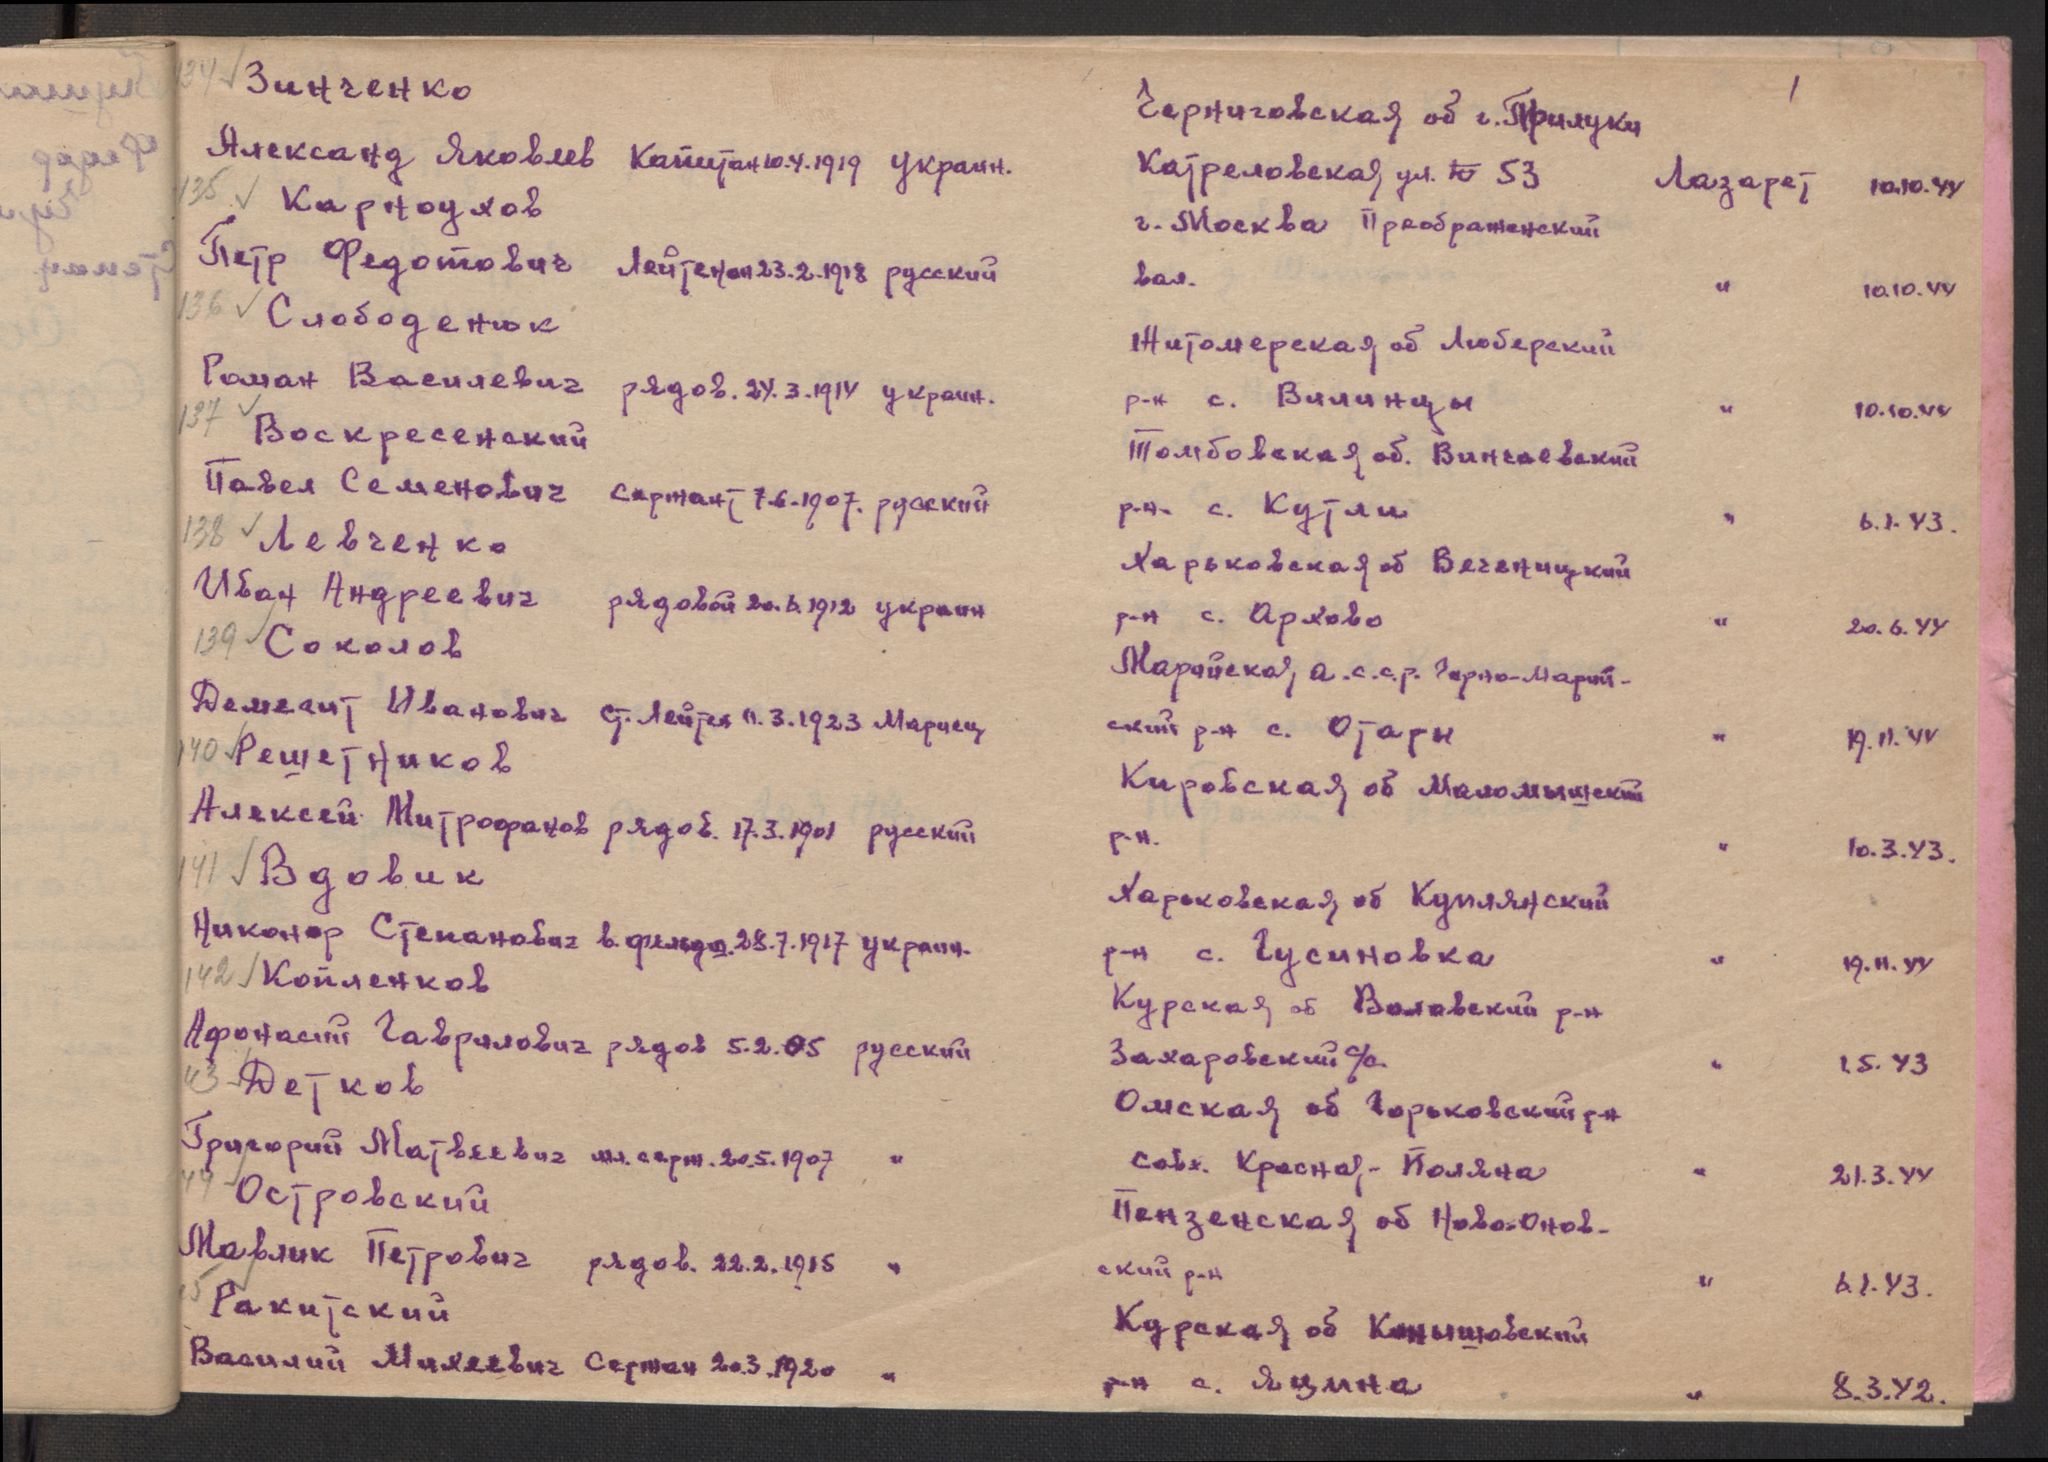 1
134 ✓ Зинченко
Черниговская об г. Прилуки
Александ Яковлев Капитан 10.4.1919 украин. Катреловская ул. № 53 Лазарет 10.10.44
135 ✓ Карноухов
г. Москва Преображенский
Петр Федотович Лейтенан 23.2.1918 русский вал. " 10.10.44
136 ✓ Слободенюк
Житомерская об Люберский
Роман Василевич рядов. 24.3.1914 украин. р-н с. Вилинцы " 10.10.44
137 ✓ Воскресенский
Томбовская об. Винчаевский
Павел Семенович сержант 7.6.1907. русский р.н. с. Кутли " 6.1.43.
138 ✓ Левченко
Харьковская об Веченицкий
Иван Андреевич рядовой 20.6.1912 украин р-н с.Архово " 20.6.44
139 ✓ Соколов
Марийская а.с.с.р. Горно-Марий-
Демегит Иванович ст. Лейтен 11.3.1923 Мариец ский р-н с. Отары " 19.11.44
140 ✓ Решетников
Кировская об Маломышский
Алексей Митрофанов рядов. 17.3.1901 русский р.н. " 10.3.43.
141 ✓ Вдовик
Харьковская об Куплянский
Никонор Степанович в. фельдш. 28.7.1917 украин. р-н с. Гусиновка " 19.11.44
142 ✓ Копленков
Курская об Воловский р-н
Афонасий Гаврилович рядов 5.2.05 русский Захаровский с/с. " 1.5.43
43 ✓ Детков
Омская об Горьковский р-н
Григорий Матвеевич мл. серж. 20.5.1907 " совх. Красная-Поляна " 21.3.44
44 ✓ Островский
Пензенская об Ново-Онов-
Мавлик Петрович рядов. 22.2.1915 " ский р-н " 6.1.43.
5 ✓ Ракитский
Курская об Конышовский
Василий Михеевич Сержан 20.3.1920 " р-н с. Яцина " 8.3.42.